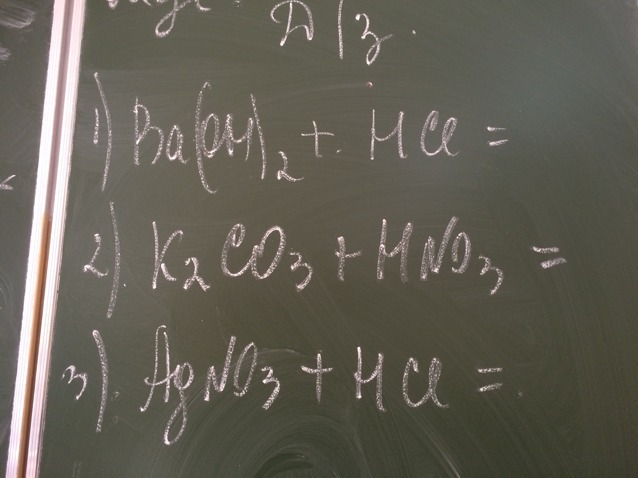 Д/з.
1) Ba(OH)₂ + HCl =
2) K₂CO₃ + HNO₃ =
3) AgNO₃ + HCl =